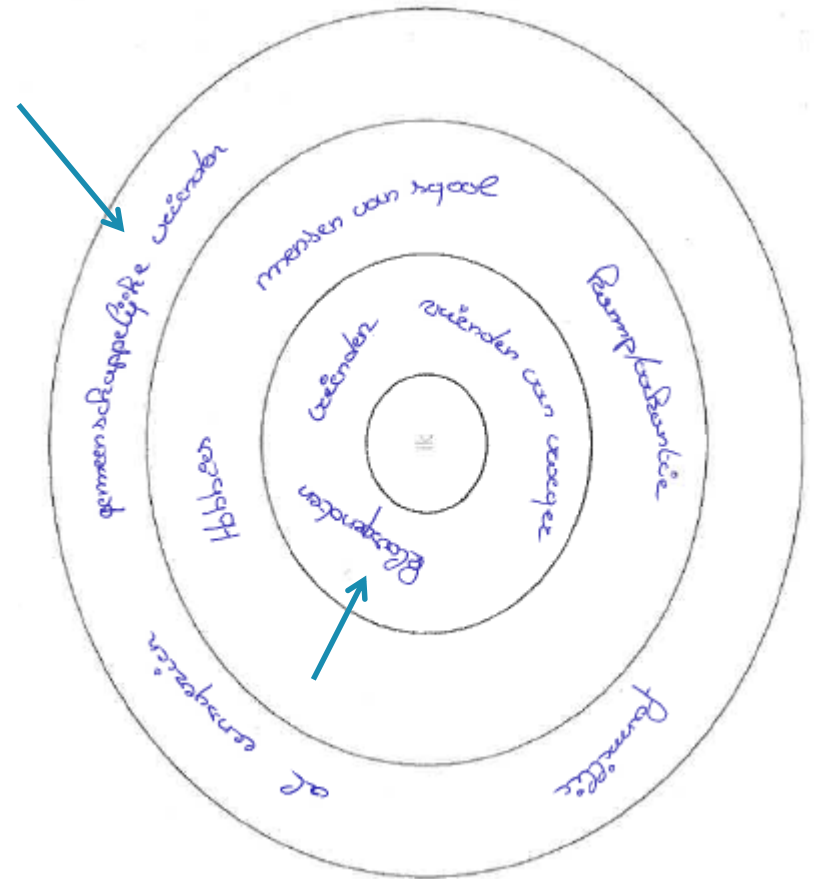 gemeenschappelijke vriënden
mensen van sgool
kamp/vakantie
Hobbies
vriënden
vriënden van vroeger
klasgenoten
al eens gezien
familie